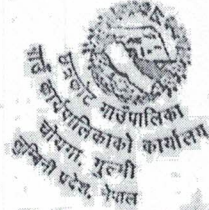 छत्रकोट गाउँपालिका
गाउँ कार्यपालिकाको कार्यालय
गुल्मी
लुम्बिनी प्रदेश, नेपाल